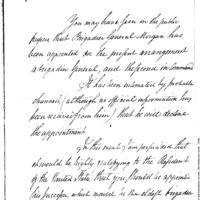 You may have seen in the public
papers that Brigadier General Morgan has
been appointed on the present arrangement
a brigadier General, and the second in command
It has been intimated by probable
channels, (although no official information has
been received from him) that he will decline
the appointment.
In this event, I am persuaded that
it would be highly gratifying to the President
of the United States that you, should be appointed
his successor, which would be the oldest brigadier